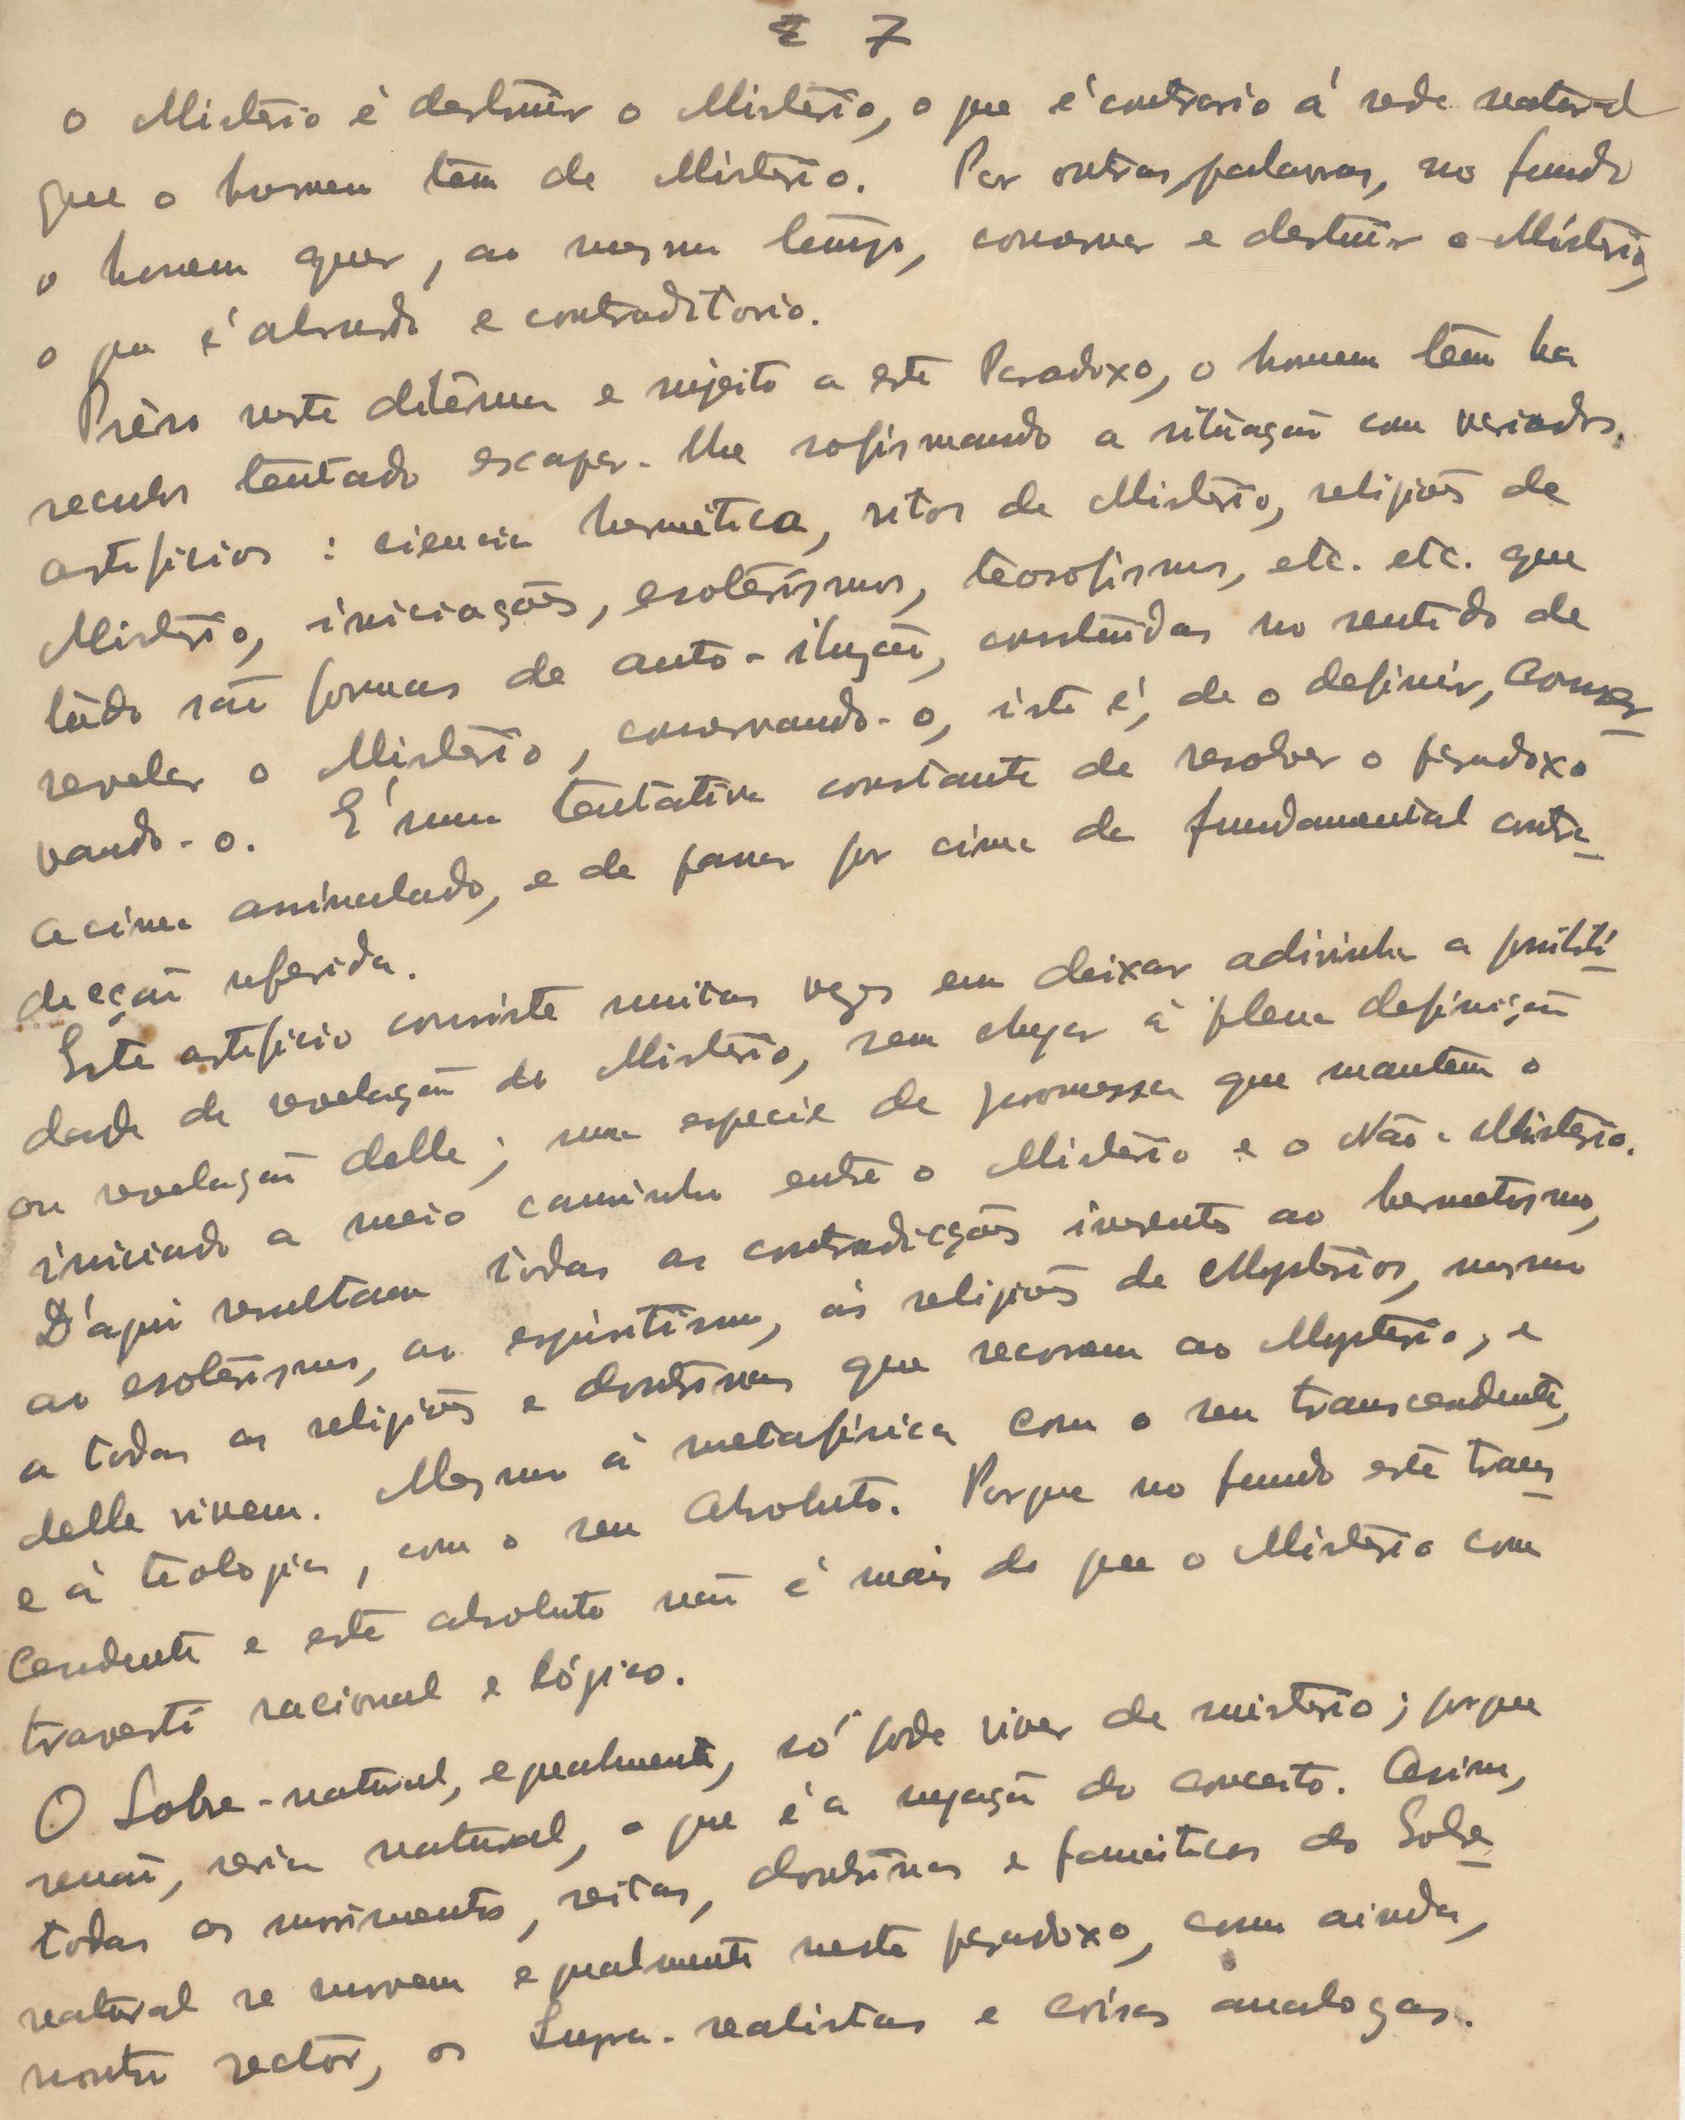 7
o Misterio é destruir o Misterio, o que é contrario á sede natural
que o homem tem de Misterio. Por outras palavras, no fundo
o homem quer, ao mesmo tempo, conservar e destruir o Misterio,
o que é absurdo e contraditorio.
Prêso neste dilêma e sujeito a este Paradoxo, o homem tem ha
seculos tentado escapar-lhe sofismando a situação com variados
artificios : ciencia hermética, ritos de Misterio, religiões de
Misterio, iniciações, esoterismos, teosofismos, etc. etc. que
tudo são formas de auto-ilusão, construidas no sentido de
revelar o Misterio, conservando-o, isto é, de o definir, conser
vando-o. É uma tentativa constante de resolver o paradoxo
acima assinalado, e de passar por cima da fundamental contra-
dicção referida.
Este artificio consiste muitas vezes em deixar adivinhar a possibili
dade da revelação do Misterio, sem chegar á plena definição
ou revelação delle ; uma especie de promessa que mantem o
iniciado a meio caminho entre o Misterio e o Não-Misterio.
D'aqui resultam todas as contradicções inerentes ao hermetismo,
ao esoterismo, ao espiritismo, ás religiões de Mysterios, mesmo
a todas as religiões e doutrinas que recorrem ao Mysterio, e
delle vivem. Mesmo á metafisica com o seu transcendente,
e á teologia, com o seu Absoluto. Porque no fundo este trans
cendente e este absoluto não é mais do que o Misterio com
travesti racional e lógico.
O Sobre-natural, egualmente, só pode viver de misterio ; porque
senão, seria natural, o que é a negação do conceito. Assim,
todos os movimentos, seitas, doutrinas e fanaticos do Sobre
natural se movem egualmente neste paradoxo, como ainda,
noutro sector, os Supra-realistas e coisas analogas.